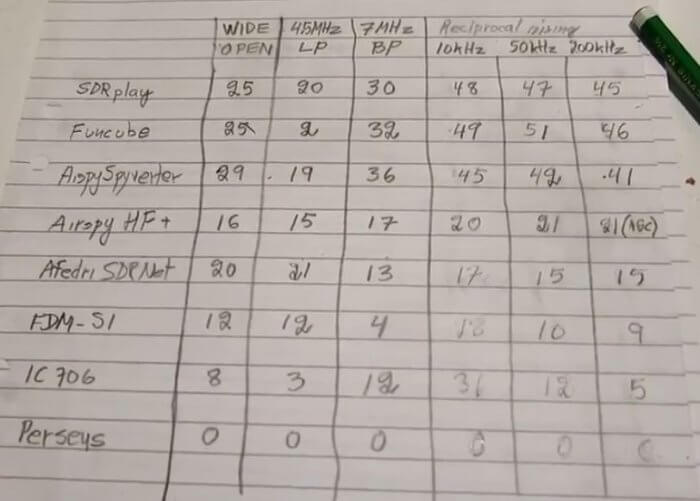 WIDE 45MHz 7MHz Reciprocal mising
OPEN LP BP 10kHz 50kHz 200kHz
SDRplay 25 20 30 48 47 45
Funcube 25 2 32 49 51 46
AispySpyverter 29 19 36 45 42 41
Airspy HF+ 16 15 17 20 21 21(AGC)
Afedri SDRNet 20 21 13 17 15 15
FDM-S1 12 12 4 18 10 9
IC706 8 3 12 31 12 5
Perseys 0 0 0 0 0 0